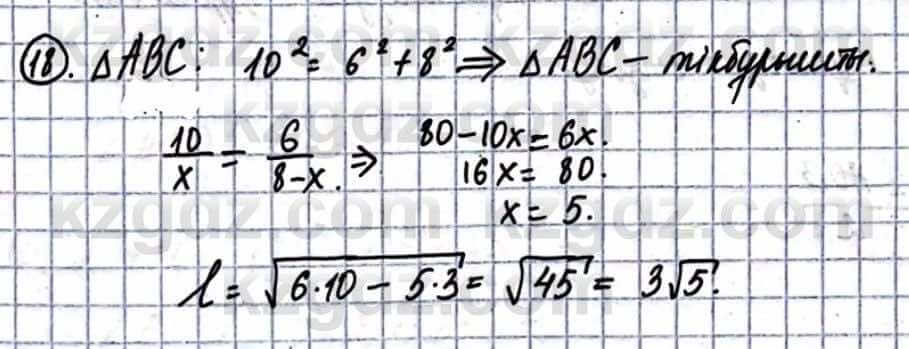 18. △ABC: 10² = 6² + 8² ⇒ △ABC – тікбұрышты.
10/x = 6/(8-x). ⇒ 80-10x = 6x.
16x = 80.
x = 5.
l = √(6·10 - 5·3) = √45 = 3√5.
kzgdz.com